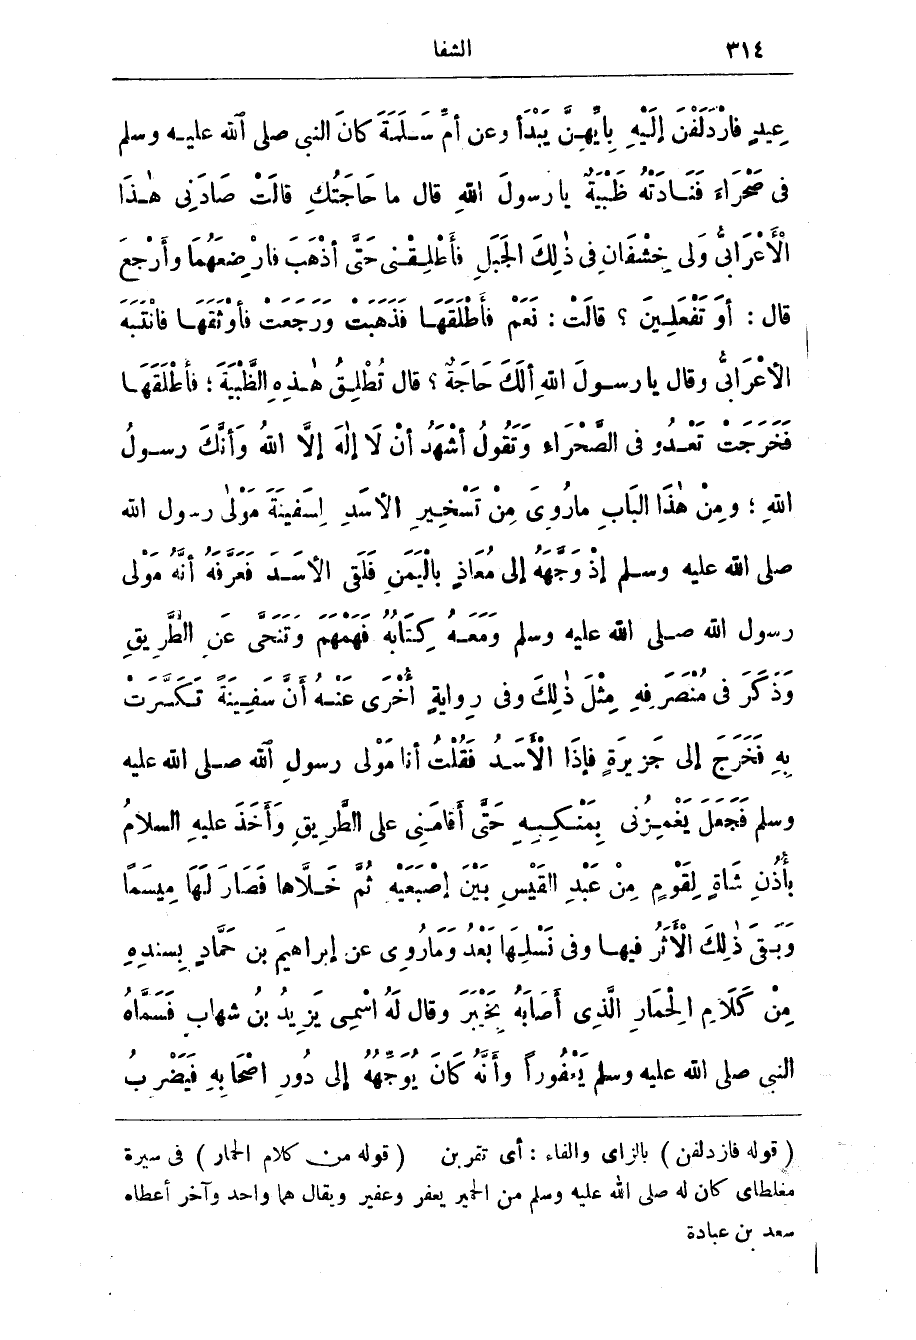 ٣١٤ الشفا
عِيدٍ فَازْدَلَفْنَ إِلَيْهِ بِأَيِّهِنَّ يَبْدَأُ وعن أمِّ سَلَمَةَ كَانَ النبى صلى اللّه عليه وسلم
فى صَحْرَاءَ فَنَادَتْهُ ظَبْيَةٌ يا رسولَ اللهِ قال ما حَاجَتُكِ قالَتْ صَادَنِى هٰذَا
الْأَعْرَابىُّ وَلِى خِشْفَانِ فى ذٰلِكَ الجَبَلِ فأَطْلِقْنى حَتَّى أَذْهَبَ فارْضِعَهُمَا وأَرْجِعَ
قال : أَوَ تَفْعَلِينَ ؟ قالَتْ : نَعَمْ فأَطْلَقَهَا فَذَهَبَتْ وَرَجَعَتْ فأَوْثَقَهَا فانْتَبَهَ
الأَعْرَابىُّ وقال يا رسولَ اللهِ أَلَكَ حَاجَةٌ ؟ قال تُطْلِقُ هٰذِهِ الظَّبْيَةَ ؛ فأَطْلَقَهَا
فَخَرَجَتْ تَعْدُو فى الصَّحْرَاءِ وَتَقُولُ أَشْهَدُ أَنْ لَا إِلٰهَ إِلَّا اللهُ وَأَنَّكَ رسولُ
اللهِ ؛ ومِنْ هٰذَا البَابِ ما رُوِىَ مِنْ تَسْخِيرِ الأَسَدِ لِسَفِينَةَ مَوْلٰى رسول الله
صلى الله عليه وسلم إِذْ وَجَّهَهُ إلى مُعَاذٍ بِالْيَمَنِ فَلَقِىَ الأَسَدَ فَعَرَّفَهُ أَنَّهُ مَوْلَى
رسول الله صلى الله عليه وسلم وَمَعَهُ كِتَابُهُ فَهَمْهَمَ وَتَنَحَّى عَنِ الطَّرِيقِ
وَذَكَرَ فى مُنْصَرَفِهِ مِثْلَ ذٰلِكَ وفى رِوايةٍ أُخْرَى عَنْهُ أَنَّ سَفِينَةً تَكَسَّرَتْ
بِهِ فَخَرَجَ إلى جَزِيرَةٍ فإِذَا الْأَسَدُ فَقُلْتُ أنا مَوْلَى رسولِ اللّه صلى الله عليه
وسلم فَجَعَلَ يَغْمِزُنى بِمَنْكِبِهِ حَتَّى أَقَامَنِى على الطَّرِيقِ وَأَخَذَ عليهِ السلامُ
بأُذُنِ شَاةٍ لِقَوْمٍ مِنْ عَبْدِ القَيْسِ بَيْنَ إِصْبَعَيْهِ ثُمَّ خَلَّاها فَصَارَ لَهَا مِيسَمًا
وَبَقِىَ ذٰلِكَ الْأَثَرُ فيها وفى نَسْلِهَا بَعْدُ وَمَا رُوِى عن إبراهيمَ بن حَمَّادٍ بِسندِهِ
مِنْ كَلَامِ الْحِمَارِ الَّذِى أَصَابَهُ بِخَيْبَرَ وقال لَهُ اسْمِى يَزِيدُ بنُ شهابٍ فَسَمَّاهُ
النبى صلى الله عليه وسلم يَعْفُوراً وأَنَّهُ كَانَ يُوَجِّهُهُ إلى دُورِ اصْحَابِهِ فَيَضْرِبُ
( قوله فازدلفن ) بالزاى والفاء : أى تقربن ( قوله من كلام الحمار ) فى سيرة
مغلطاى كان له صلى الله عليه وسلم من الحمير يعفر وعفير ويقال هما واحد وآخر أعطاه
سعد بن عبادة